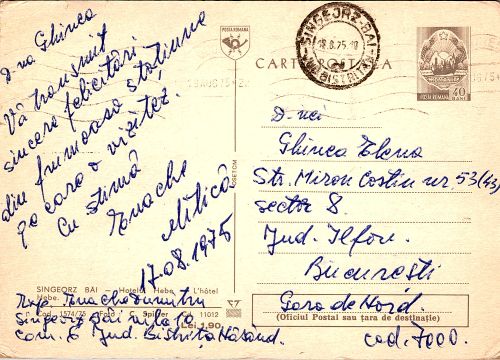 D-na Ghinea
Vă transmit
sincere felicitări
din frumoasa stațiune
pe care o vizitez.
Cu stimă
Enache
Mitică
17.08.1975
POSTA ROMANA
SINGEORZ-BAI
18.8.75
BISTRIȚA
CARTE POSTALA
40
BANI
D-nei
Ghinea Elena
Str. Miron Costin nr 53 (43)
sector 8.
Jud. Ilfov.
București
Gara de Nord.
(Oficiul Postal sau țara de destinatie)
cod. 7000.
SINGEORZ BĂI — Hotelul Hebe. L'hôtel
Hebe.
Cod 1574/75 Foto: Spitzer Cd. 11012
Lei 1,90
Enache Dumitru
Singeorz Băi
Jud Bistrița Năsăud.